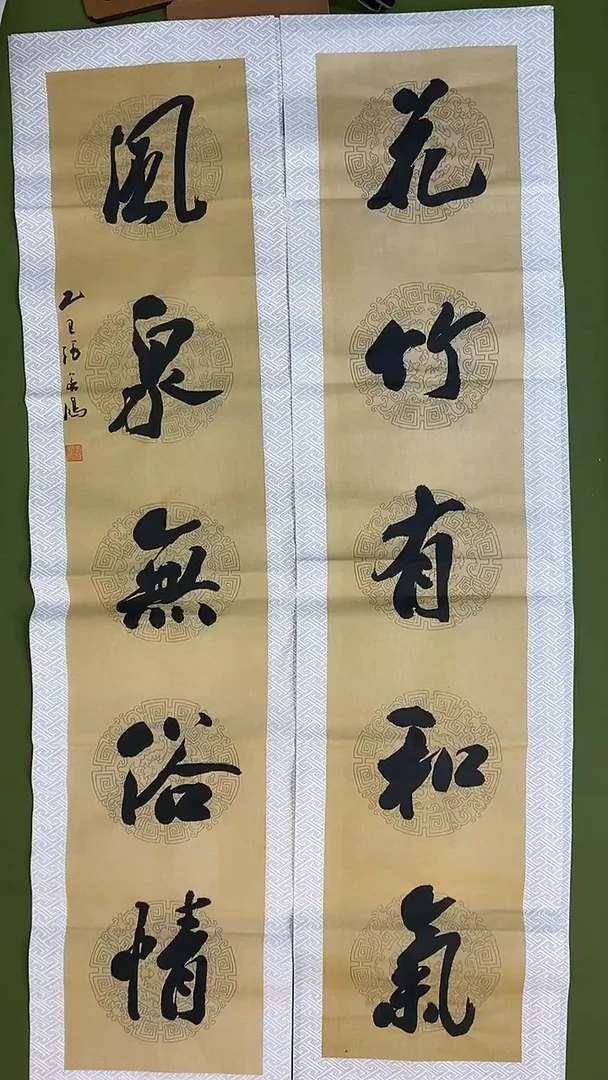 花竹有和氣
風泉無俗情
乙巳